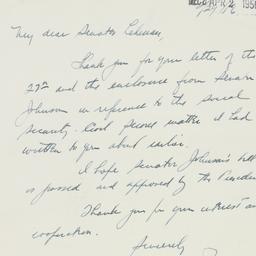 REC'D APR 2 1956
My dear Senator Lehman,
Thank you for your letter of the
27th and the enclosure from Senator
Johnson in reference to the social
security. Good second matter I had
written to you about earlier.
I hope Senator Johnson's bill
is passed and approved by the President
Thank you for your interest and
cooperation.
Sincerely